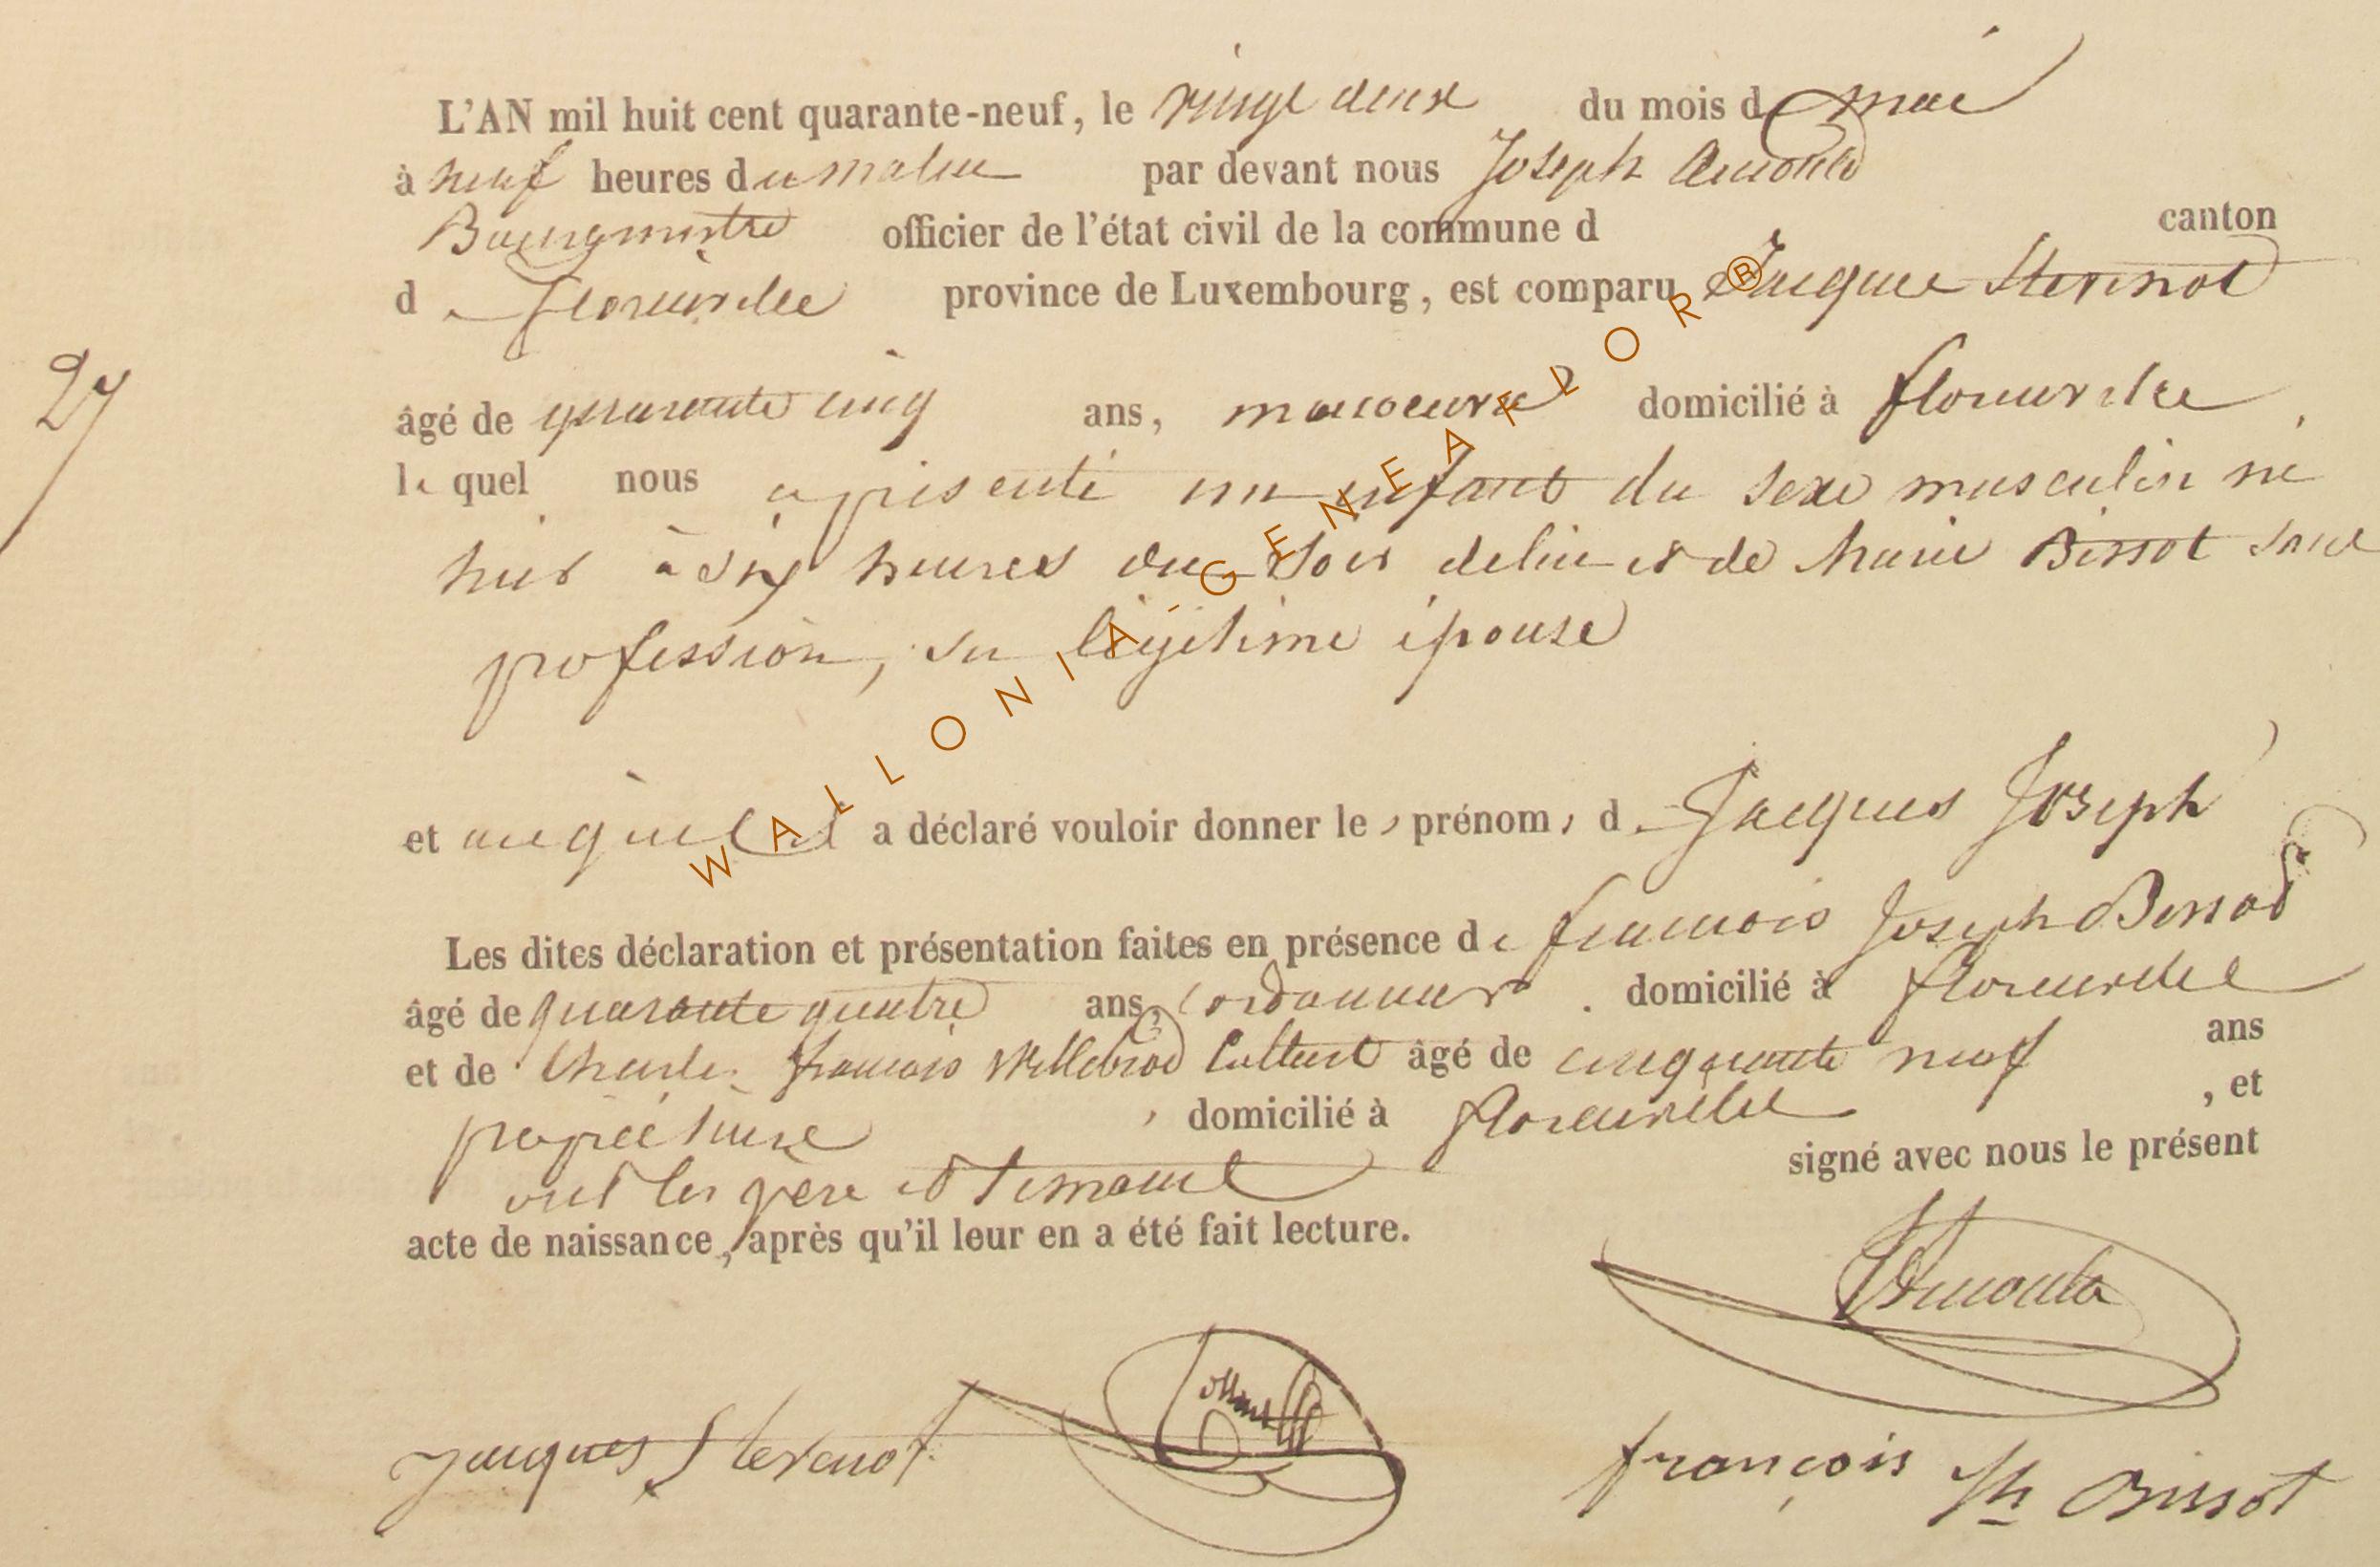 L'AN mil huit cent quarante-neuf, le vingt deux du mois de mai
à neuf heures du matin par devant nous Joseph Arnould
Bourgmestre officier de l'état civil de la commune d canton
d Florenville province de Luxembourg, est comparu Jacques Stevenot
27
âgé de quarante cinq ans, manoeuvre domicilié à florenville
le quel nous a présenté un enfant du sexe musculin né
hier à six heures du soir de lui et de Marie Bissot sans
profession, sa légitime épouse
et auquel il a déclaré vouloir donner les prénoms de Jacques Joseph
Les dites déclaration et présentation faites en présence de francois Joseph Bissot
âgé de quarante quatre ans, cordonnier domicilié à florenville
et de Charles francois Willebrod Collard âgé de cinquante neuf ans
propriétaire, domicilié à florenville, et
ont les père et temoins signé avec nous le présent
acte de naissance, après qu'il leur en a été fait lecture.
Arnould
Jacques Stevenot
françois Jh Bissot
WALLONIA-GENEAFLOR®